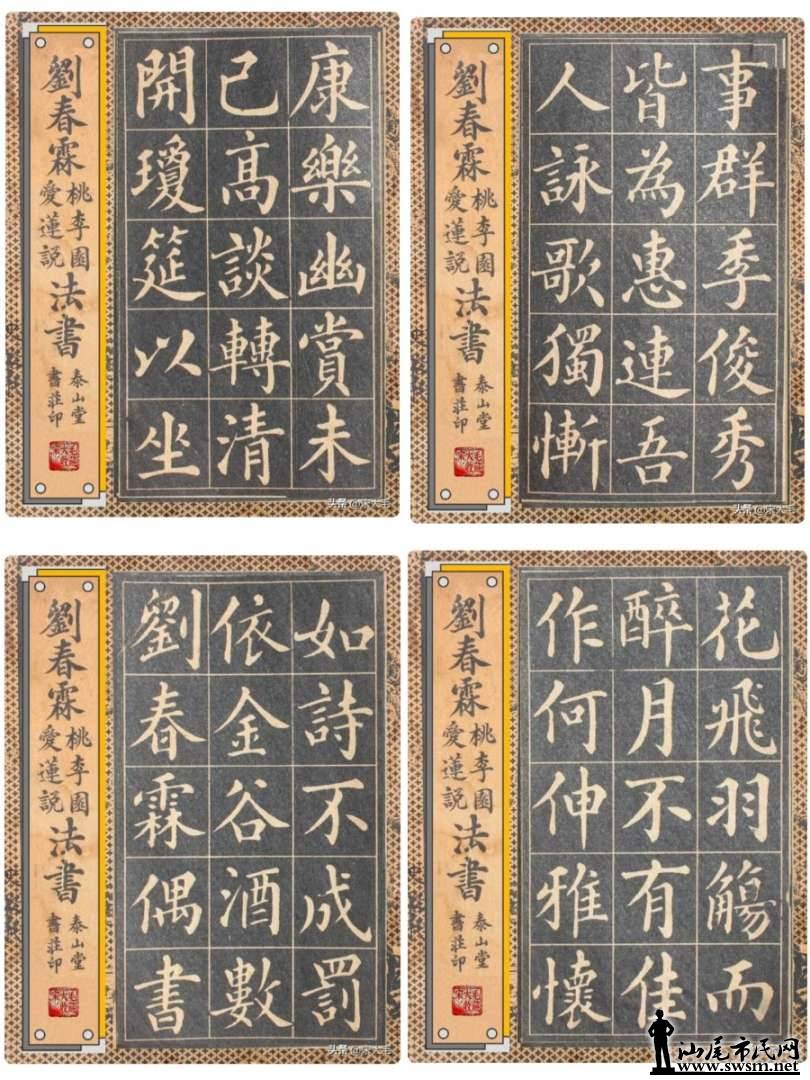 事群季俊秀
皆為惠連吾
人詠歌獨慚
劉春霖
桃李園
愛蓮說
法書
泰山堂
書莊印
康樂幽賞未
已高談轉清
開瓊筵以坐
劉春霖
桃李園
愛蓮說
法書
泰山堂
書莊印
花飛羽觴而
醉月不有佳
作何伸雅懷
劉春霖
桃李園
愛蓮說
法書
泰山堂
書莊印
如詩不成罰
依金谷酒數
劉春霖偶書
劉春霖
桃李園
愛蓮說
法書
泰山堂
書莊印
汕尾市民网
www.swsm.net